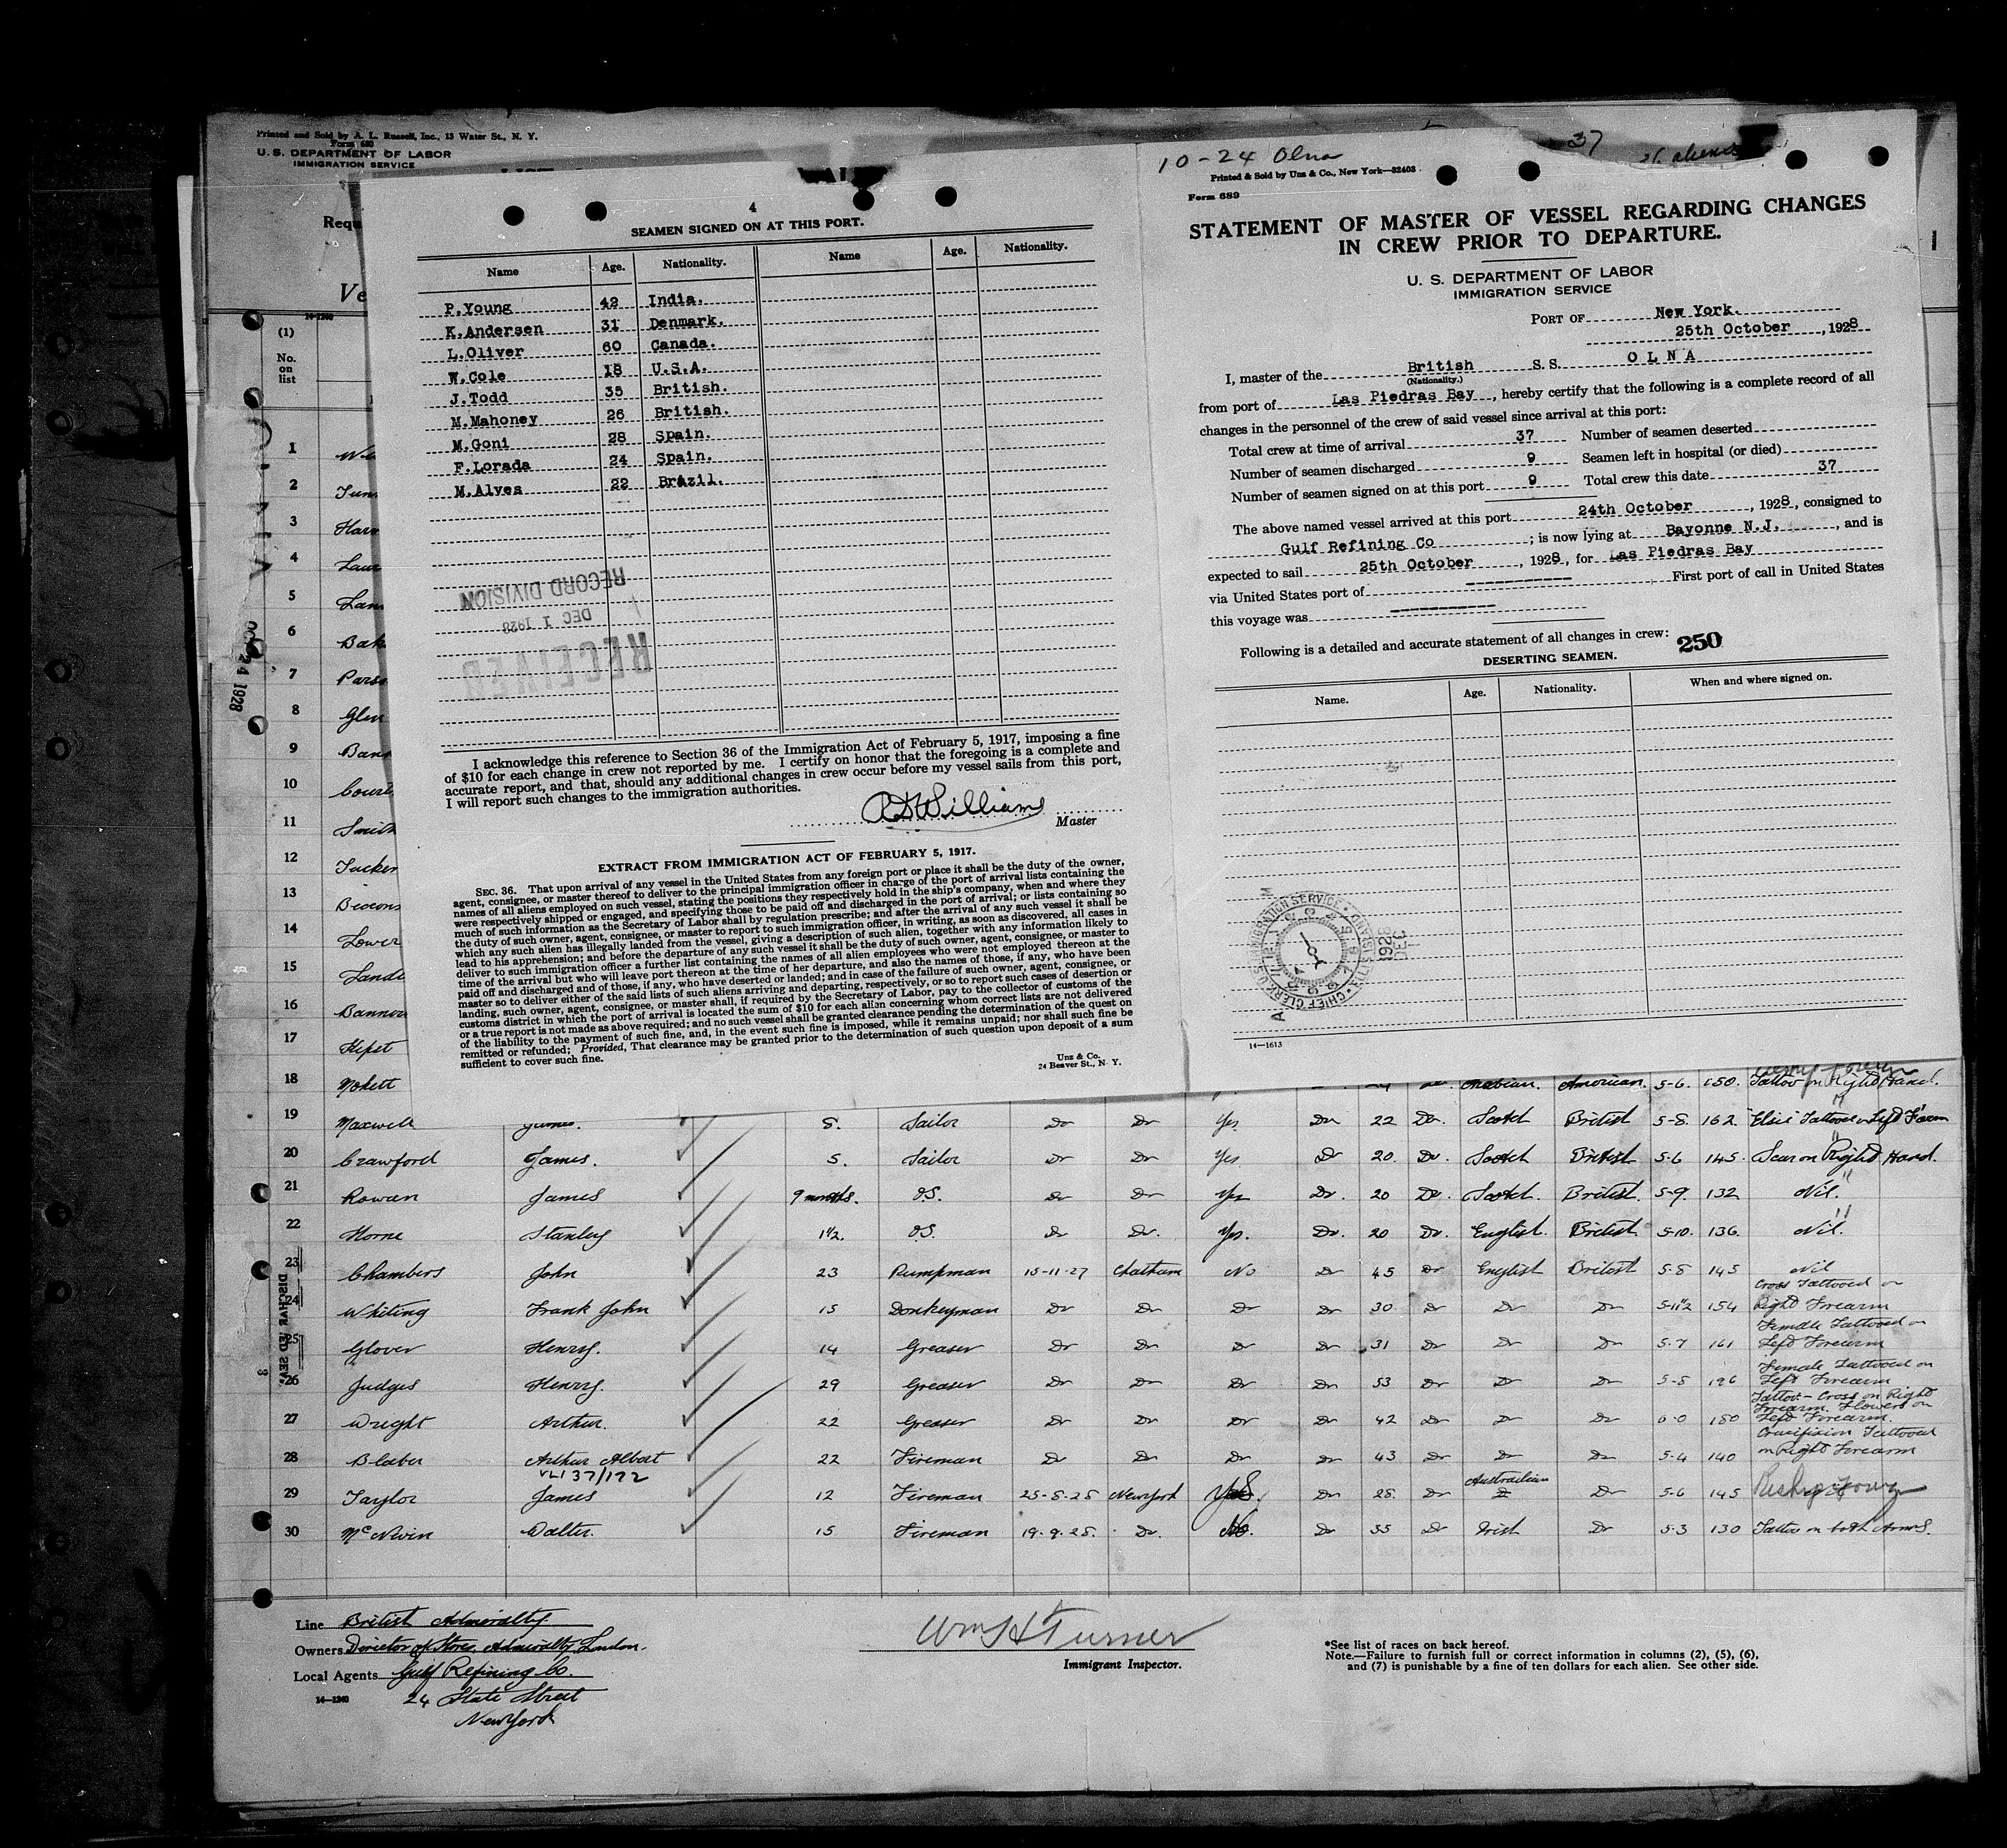 Printed and Sold by A. L. Russell, Inc., 13 Water St., N. Y.
Form 680
U. S. DEPARTMENT OF LABOR
IMMIGRATION SERVICE
Requ
Ve
14-1240
(1)
No.
on
list
4
SEAMEN SIGNED ON AT THIS PORT.
Name Age. Nationality. Name Age. Nationality.
P.Young 42 India.
K.Andersen 31 Denmark.
L.Oliver 60 Canada.
W.Cole 18 U.S.A.
J.Todd 35 British.
M.Mahoney 26 British.
M.Goni 28 Spain.
F.Lorada 24 Spain.
M.Alves 22 Brazil.
RECORD DIVISION
DEC 1 1928
RECEIVED
I acknowledge this reference to Section 36 of the Immigration Act of February 5, 1917, imposing a fine
of $10 for each change in crew not reported by me. I certify on honor that the foregoing is a complete and
accurate report, and that, should any additional changes in crew occur before my vessel sails from this port,
I will report such changes to the immigration authorities.
Williams
Master
EXTRACT FROM IMMIGRATION ACT OF FEBRUARY 5, 1917.
SEC. 36. That upon arrival of any vessel in the United States from any foreign port or place it shall be the duty of the owner,
agent, consignee, or master thereof to deliver to the principal immigration officer in charge of the port of arrival lists containing the
names of all aliens employed on such vessel, stating the positions they respectively hold in the ship's company, when and where they
were respectively shipped or engaged, and specifying those to be paid off and discharged in the port of arrival; or lists containing so
much of such information as the Secretary of Labor shall by regulation prescribe; and after the arrival of any such vessel it shall be
the duty of such owner, agent, consignee, or master to report to such immigration officer, in writing, as soon as discovered, all cases in
which any such alien has illegally landed from the vessel, giving a description of such alien, together with any information likely to
lead to his apprehension; and before the departure of any such vessel it shall be the duty of such owner, agent, consignee, or master to
deliver to such immigration officer a further list containing the names of all alien employees who were not employed thereon at the
time of the arrival but who will leave port thereon at the time of her departure, and also the names of those, if any, who have been
paid off and discharged and of those, if any, who have deserted or landed; and in case of the failure of such owner, agent, consignee, or
master so to deliver either of the said lists of such aliens arriving and departing, respectively, or so to report such cases of desertion or
landing, such owner, agent, consignee, or master shall, if required by the Secretary of Labor, pay to the collector of customs of the
customs district in which the port of arrival is located the sum of $10 for each alien concerning whom correct lists are not delivered
or a true report is not made as above required; and no such vessel shall be granted clearance pending the determination of the quest on
of the liability to the payment of such fine, and, in the event such fine is imposed, while it remains unpaid; nor shall such fine be
remitted or refunded; Provided, That clearance may be granted prior to the determination of such question upon deposit of a sum
sufficient to cover such fine.
Unz & Co.
24 Beaver St., N. Y.
10-24 Olna
37
Printed & Sold by Unz & Co., New York—32403
Form 689
STATEMENT OF MASTER OF VESSEL REGARDING CHANGES
IN CREW PRIOR TO DEPARTURE.
U. S. DEPARTMENT OF LABOR
IMMIGRATION SERVICE
PORT OF New York.
25th October , 1928
I, master of the British S. S. O L N A
(Nationality.)
from port of Las Piedras Bay , hereby certify that the following is a complete record of all
changes in the personnel of the crew of said vessel since arrival at this port:
Total crew at time of arrival 37 Number of seamen deserted
Number of seamen discharged 9 Seamen left in hospital (or died)
Number of seamen signed on at this port 9 Total crew this date 37
The above named vessel arrived at this port 24th October , 1928, consigned to
Gulf Refining Co ; is now lying at Bayonne N.J. , and is
expected to sail 25th October , 1928, for Las Piedras Bay
via United States port of First port of call in United States
this voyage was
Following is a detailed and accurate statement of all changes in crew: 250
DESERTING SEAMEN.
Name. Age. Nationality. When and where signed on.
14—1613
OCT 24 1928
1
2
3
4
5
6
7
8
9
10
11 Smith
12 Tucker
13
14 Lower
15
16
17
18 American. 5-6. 150. Tattoo on Right Hand.
19 Maxwell James. 8. Sailor Do Do Yes Do 22 Do. Scotch British 5-8 162. "Elsie" Tattooed on Left F'arm
20 Crawford James. 5. Sailor Do Do Yes Do 20. Do. Scotch British 5-6 145. Scar on Right Hand.
21 Rowan James 9 months. O.S. Do Do Yes Do. 20 Do. Scotch. British. 5-9. 132 Nil.
22 Horne Stanley 1½. O.S. Do Do. Yes. Do. 20 Do. English. British. 5-10. 136. Nil.
23 Chambers John 23 Pumpman 15-11-27 Chatham No Do 45 Do English British 5-8 145 Nil
24 Whiting Frank John 15 Donkeyman Do Do Do Do 30 Do Do Do 5-11½ 154 Cross Tattooed on Right Forearm
25 Glover Henry. 14 Greaser Do Do Do Do 31 Do Do Do 5-7 161 Female Tattooed on Left Forearm
26 Judges Henry. 29 Greaser Do Do Do Do 53 Do Do Do 5-8 196 Female Tattooed on Left Forearm
27 Wright Arthur. 22 Greaser Do Do Do Do 42 Do Do Do 6-0 180 Tattoo - Cross on Right Forearm. Flowers on Left Forearm.
28 Blaber Arthur Albert 22 Fireman Do Do Do Do 43 Do Do Do 5-4 140 Crucifixion Tattooed on Right Forearm
29 Taylor James 12 Fireman 25-8-28 New York Yes. Do 28. Do Australian Do 5-6 145
30 McNevin Walter. 15 Fireman 19-9-28. Do. No. Do 35 Do Irish Do 5-3 130 Tattoo on both Arms.
Line British Admiralty.
Owners Director of Stores, Admiralty, London.
Local Agents Gulf Refining Co.
14—1240
24 State Street
New York
Wm H Turner
Immigrant Inspector.
*See list of races on back hereof.
Note.—Failure to furnish full or correct information in columns (2), (5), (6),
and (7) is punishable by a fine of ten dollars for each alien. See other side.